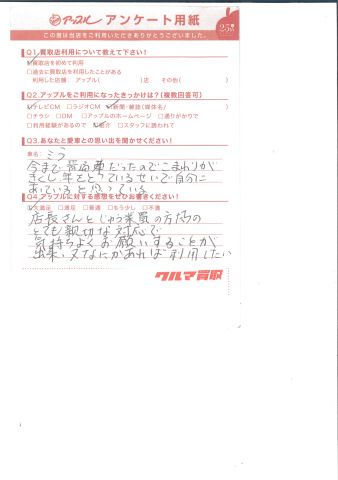 アップル アンケート用紙
25周年
この度は当店をご利用いただきありがとうございました。
Q1.買取店利用について教えて下さい!
☑買取店を初めて利用
□過去に買取店を利用したことがある
利用した店舗: アップル( )店 その他( )
Q2.アップルをご利用になったきっかけは?(複数回答可)
☑テレビCM □ラジオCM ☑新聞・雑誌(媒体名/ )
□チラシ □DM □アップルのホームページ □通りがかりで
□利用経験があるので ☑紹介 □スタッフに誘われて
Q3.あなたと愛車との思い出を聞かせください!
車名: ミラ
今まで普通車だったのでこまわりが
きくし、年をとっているせいで自分に
あっていると思っている
Q4.アップルに対する感想をぜひお書きください!
☑大満足 □満足 □普通 □もう少し □不満
店長さんとじゅう業員の方たちの
とても親切な対応で
気持ちよくお願いすることが
出来、又なにかあれば利用したい
クルマ買取